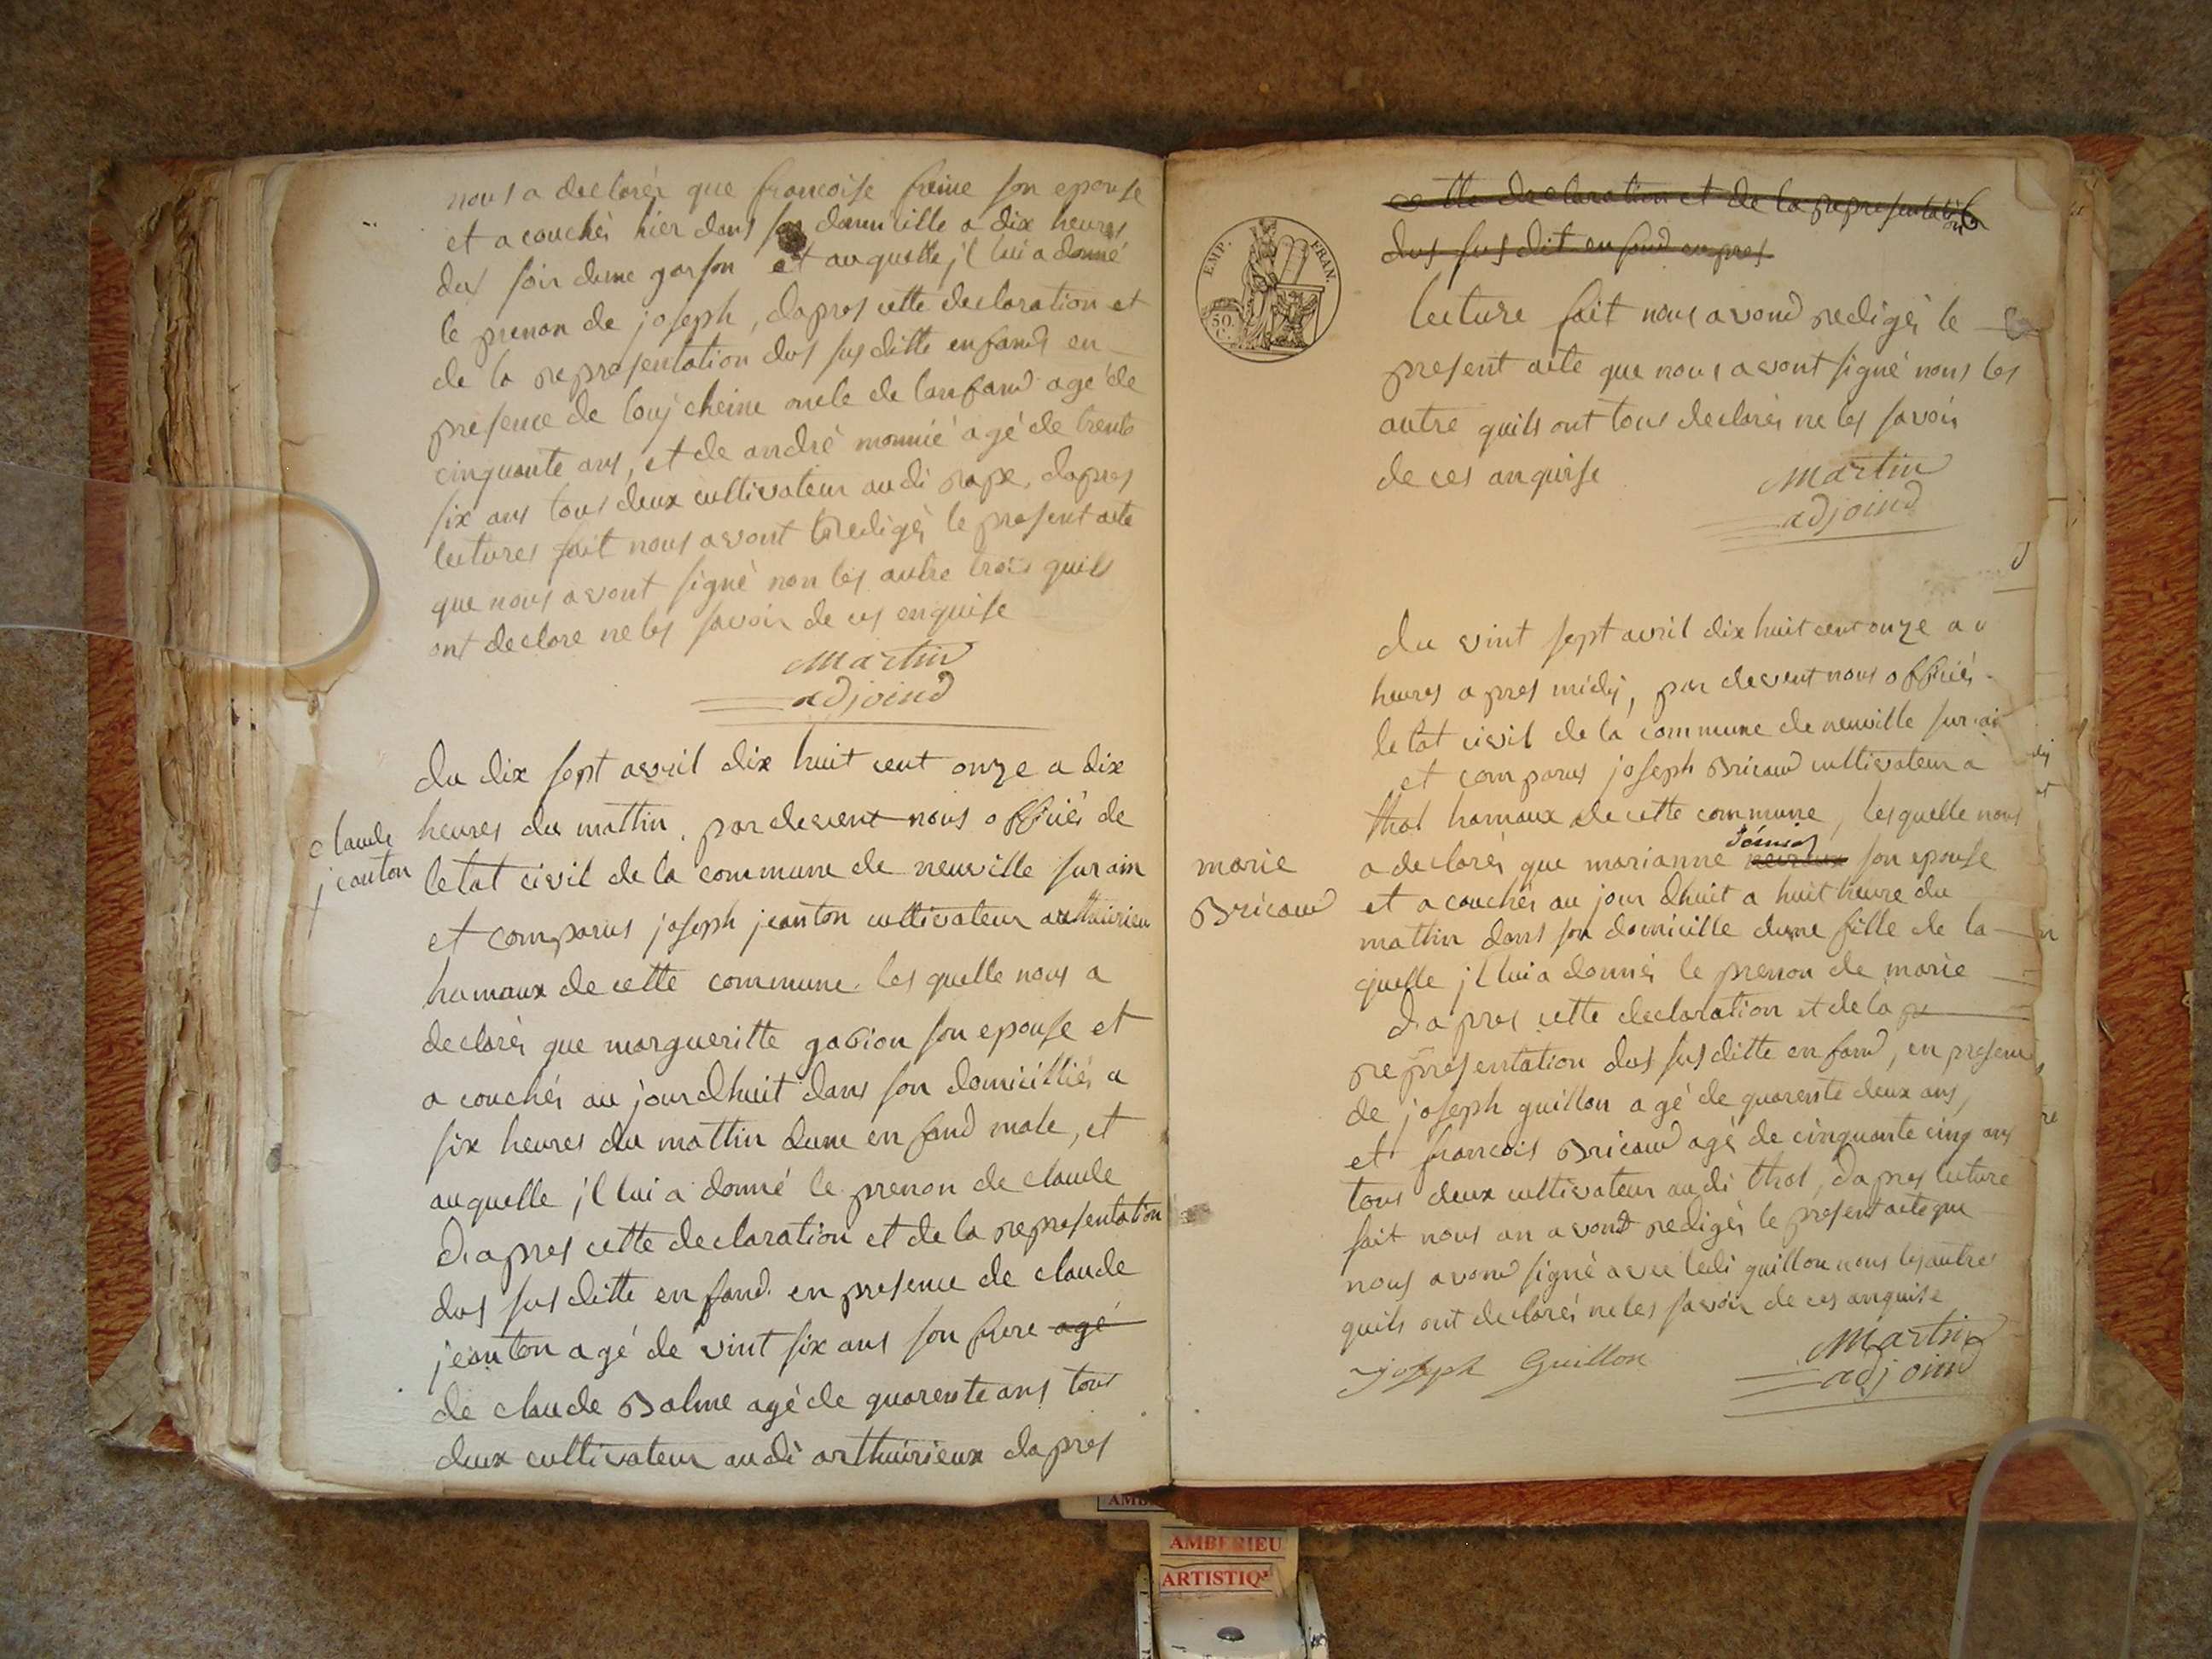 nous a declarér que francoise freine son epouse
et a couchér hier dans son domicille a dix heures
dus soir dune garson et auquelle jl lui a donné
le prenon de joseph, dapres cette declaration et
de la representation dus sus ditte enfand en
presence de louj cheine oncle de lanfand agé de
cinquante ans, et de andrè monnié agé de trente
six ans tous deux cultivateur audi rape, dapres
lectures fait nous avont redigér le present acte
que nous avont signé non les autre trois quils
ont declare ne les savoir de ces enquise
Martin
adjoind
du dix sept avril dix huit cent onze a dix
claude
jeanton
heures du mattin, par devent nous offisiér de
letat civil de la commune de neuville sur ain
et comparus joseph jeanton cultivateur a authuirieu
hamaux de cette commune, les quelle nous a
declarér que margueritte gavion son epouse et
a couchér au jourdhuit dans son domicilliér a
six heures du mattin dune en fand male, et
auquelle jl lui a donné le prenon de claude
dapres cette declaration et de la representation
dus sus ditte en fand. en presence de claude
jeanton agé de vint six ans son frere agé
de claude Balme agé de quarente ans tous
deux cultivateur audi arthuirieux dapres
cette declaration et de la representation
dus sus dit enfand en pres
EMP. FRAN.
50 C.
lecture fait nous avond redigér le
present acte que nous avont signé nons les
autre quils ont tous declarér ne les savoir
de ces anquise
Martin
adjoind
du vint sept avril dix huit cent onze a
heures apres midy, par devent nous offisiér
letat civil de la commune de neuville sur ai
et comparus joseph Bricaud cultivateur a
thol hamaux de cette commune, lesquelle nous
marie
Bricaud
a declarér que marianne son epouse
et a couchér au jour dhuit a huit heure du
mattin dans son domicille dune fille de la
quelle jl lui a donnér le prenon de marie
dapres cette declaration et de la re
representation dus sus ditte en fand, en presence
de joseph guillon agé de quarente deux ans,
et francois Bricaud agé de cinquante cinq ans
tous deux cultivateur audi thol, dapres lecture
fait nous an avond redigér le present acte que
nous avond signé avec ledi guillon nons les autre
quils ont declarér ne les savoir de ces anquise
Joseph Guillon
Martin
adjoind
AMBERIEU
ARTISTIQ